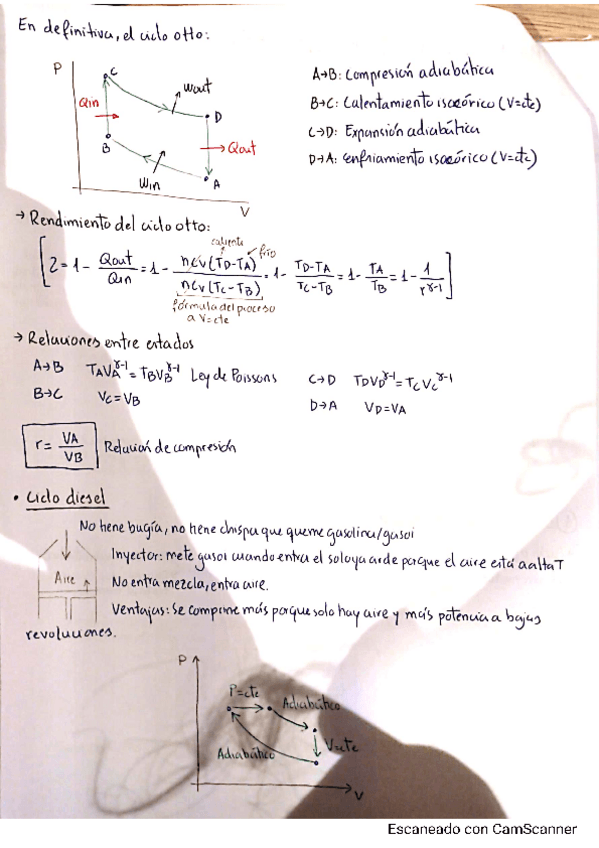 En definitiva, el ciclo otto:
P
C
Wout
Qin
D
B
Qout
Win
A
V
A→B: Compresión adiabática
B→C: Calentamiento isocórico (V=cte)
C→D: Expansión adiabática
D→A: enfriamiento isocórico (V=cte)
→ Rendimiento del ciclo otto:
caliente frío
[η = 1 - Qout/Qin = 1 - nCv(TD-TA)/nCv(TC-TB) = 1 - TD-TA/TC-TB = 1 - TA/TB = 1 - 1/r^γ-1]
fórmula del proceso
a V=cte
→ Relaciones entre estados
A→B TAVA^γ-1 = TBVB^γ-1 Ley de Poissons
C→D TDVD^γ-1 = TCVC^γ-1
B→C VC=VB
D→A VD=VA
r = VA/VB Relación de compresión
• Ciclo diesel
No tiene bugía, no tiene chispa que queme gasolina/gasoi
Aire
Inyector: mete gasoi cuando entra el solo ya arde porque el aire está a alta T
No entra mezcla, entra aire.
Ventajas: Se comprime más porque solo hay aire y más potencia a bajas
revoluciones.
P
P=cte
Adiabático
V=cte
Adiabático
V
Escaneado con CamScanner